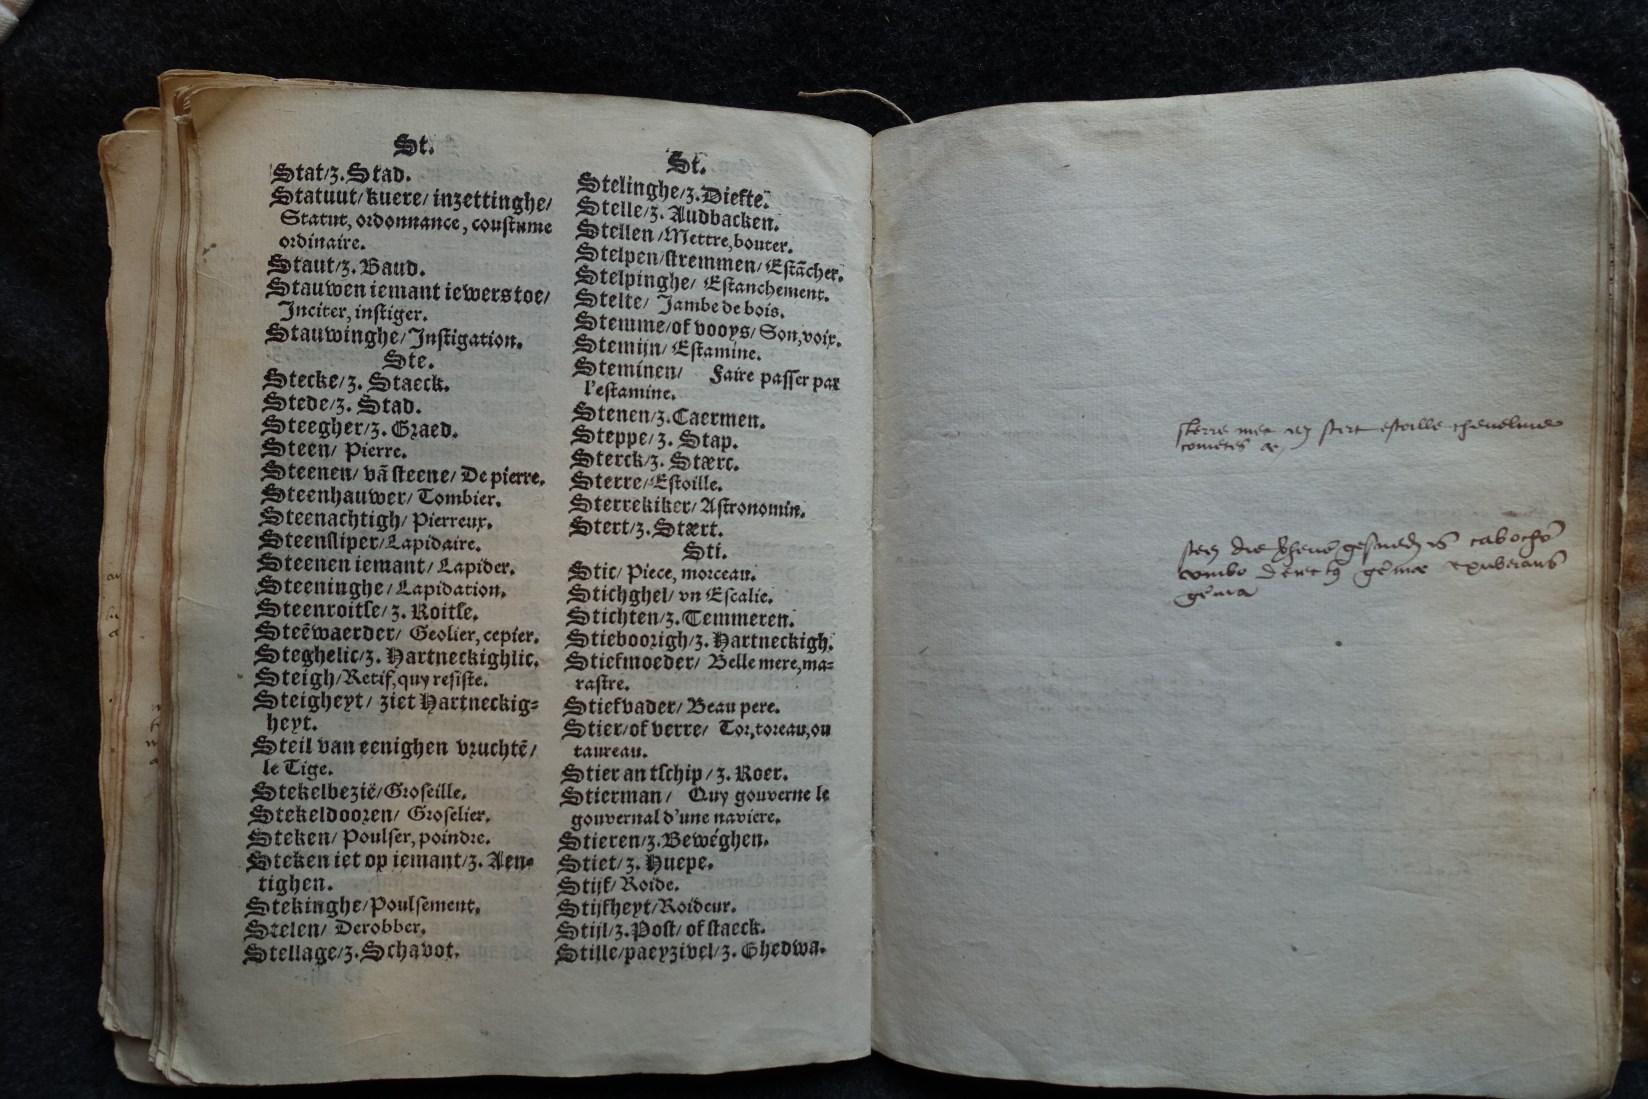 St.
Stat/z. Stad.
Statuut/kuere/inzettinghe/
Statut, ordonnance, coustume
ordinaire.
Staut/z. Baud.
Stauwen iemant iewers toe/
Inciter, instiger.
Stauwinghe/Instigation.
Ste.
Stecke/z. Staeck.
Stede/z. Stad.
Steegher/z. Graed.
Steen/ Pierre.
Steenen/ vā steene/ De pierre.
Steenhauwer/ Tombier.
Steenachtigh/ Pierreux.
Steensliper/Lapidaire.
Steenen iemant/ Lapider.
Steeninghe/Lapidation.
Steenroitse/z. Roitse.
Steēwaerder/ Geolier, cepier.
Steghelic/z. Hartneckighlic.
Steigh/Retif, quy resiste.
Steigheyt/ ziet Hartneckig=
heyt.
Steil van eenighen vruchtē/
le Tige.
Stekelbezië/Groseille.
Stekeldooren/ Groselier.
Steken/ Poulser, poindre.
Steken iet op iemant/z. Aen=
tighen.
Stekinghe/Poulsement.
Stelen/ Derobber.
Stellage/z. Schavot.
St.
Stelinghe/z. Diefte.
Stelle/z. Audbacken.
Stellen/Mettre, bouter.
Stelpen/stremmen/Estācher.
Stelpinghe/ Estanchement.
Stelte/ Jambe de bois.
Stemme/of vooys/ Son, voix.
Stemijn/ Estamine.
Steminen/ Faire passer par
l'estamine.
Stenen/z. Caermen.
Steppe/z. Stap.
Sterck/z. Stærc.
Sterre/Estoille.
Sterrekiker/Astronomin.
Stert/z. Stært.
Sti.
Stic/ Piece, morceau.
Stichghel/ vn Escalie.
Stichten/z. Temmeren.
Stieboorigh/z. Hartneckigh.
Stiefmoeder/ Belle mere, ma=
rastre.
Stiefvader/ Beau pere.
Stier/of verre/ Tor, toreau, ou
taureau.
Stier an tschip/z. Roer.
Stierman/ Quy gouverne le
gouvernal d'une naviere.
Stieren/z. Bewéghen.
Stiet/z. Huepe.
Stijf/Roide.
Stijfheyt/Roideur.
Stijl/z. Post/ of staeck.
Stille/paeyzivel/z. Ghedwa.
sterre met stert estoille chevelue
cometes
steen die gesneden is cabochō
umbo gēmæ exuberans
gēma